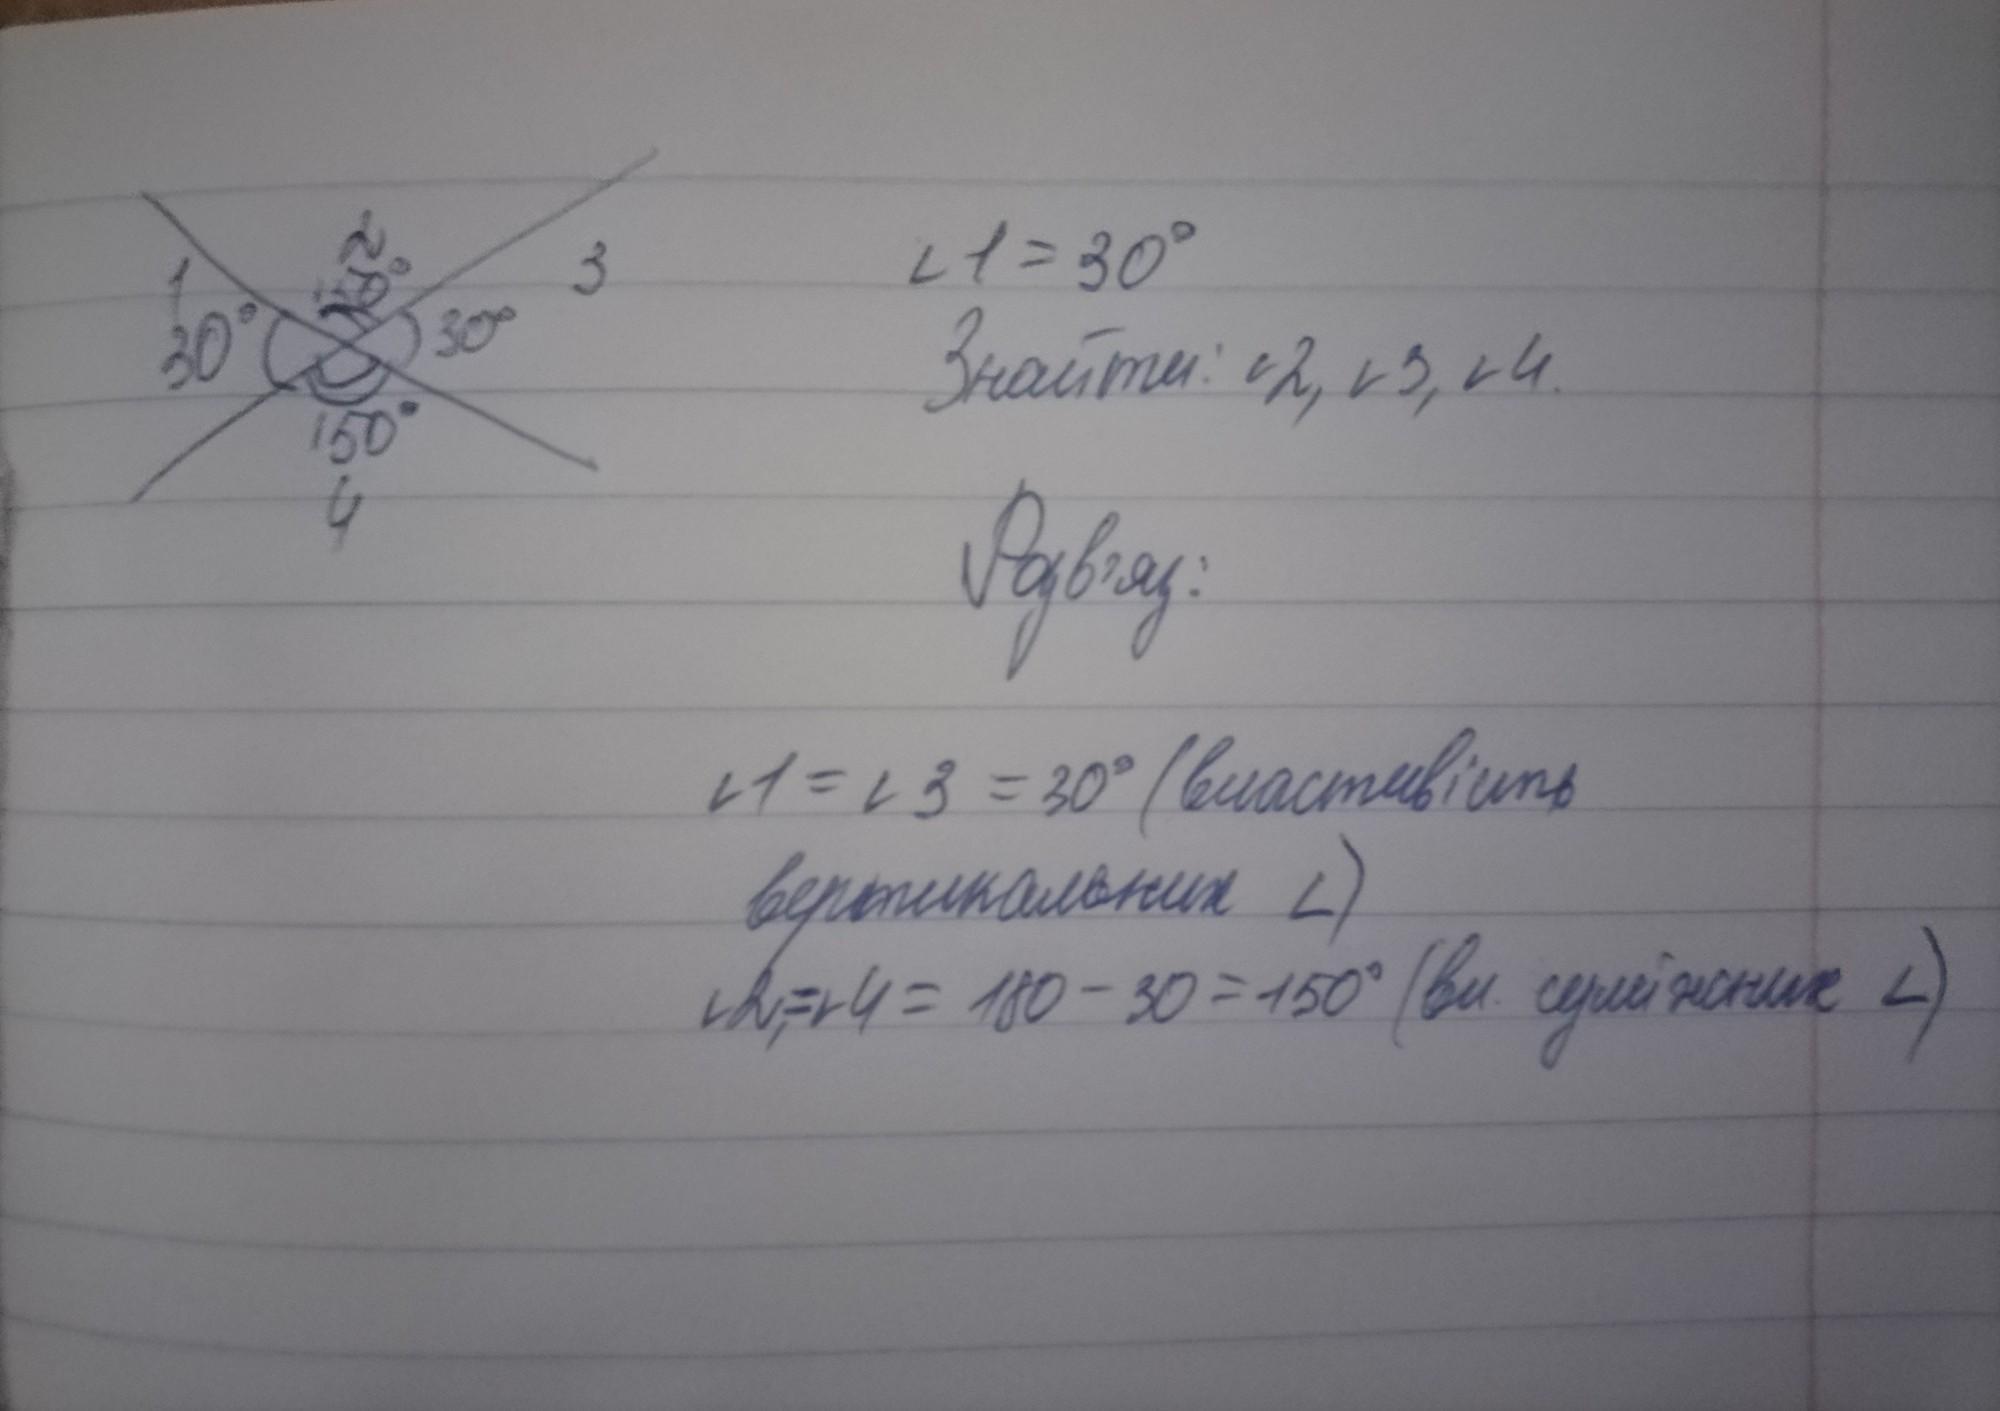 1
2
3
30°
150°
30°
150°
4
∠1 = 30°
Знайти: ∠2, ∠3, ∠4.
Розв'яз:
∠1 = ∠3 = 30° (властивість
вертикальних ∠)
∠2,=∠4 = 180 - 30 = 150° (вл. суміжних ∠)